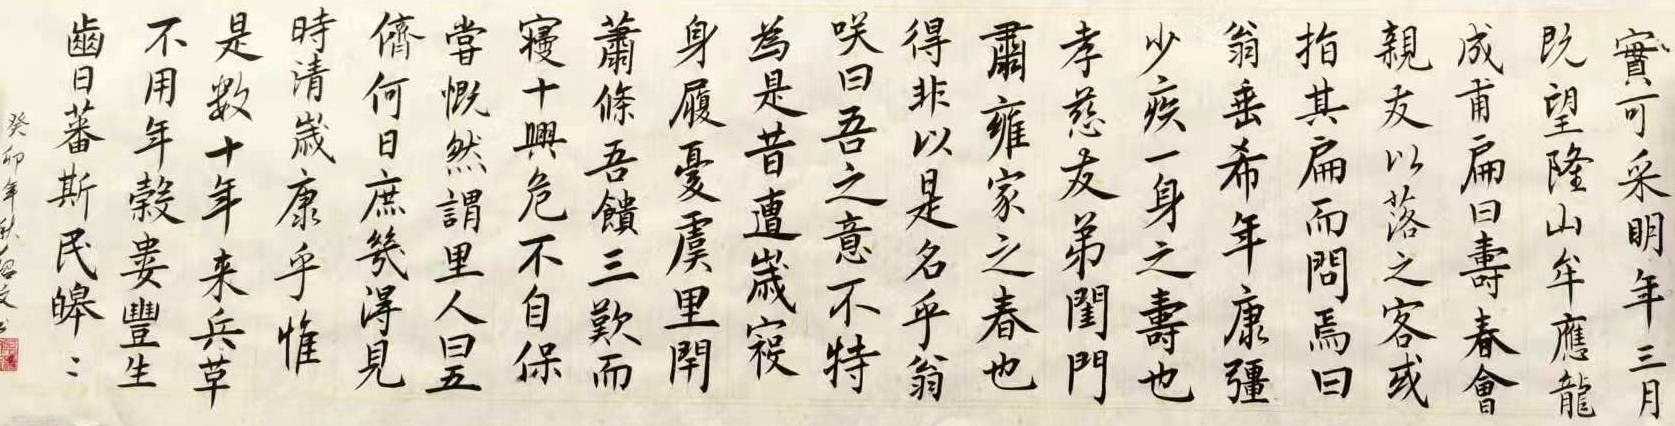 實可采明年三月
既望隆山牟應龍
成甫扁曰壽春會
親友以落之客或
指其扁而問焉曰
翁垂希年康彊
少疾一身之壽也
孝慈友弟閨門
肅雍家之春也
得非以是名乎翁
咲曰吾之意不特
為是昔遭嵗祲
身履憂虞里閈
蕭條吾饋三歎而
寢十興危不自保
嘗慨然謂里人曰五
儕何日庶幾得見
時清嵗康乎惟
是數十年来兵草
不用年穀婁豐生
齒日蕃斯民皞〻
癸卯年秋